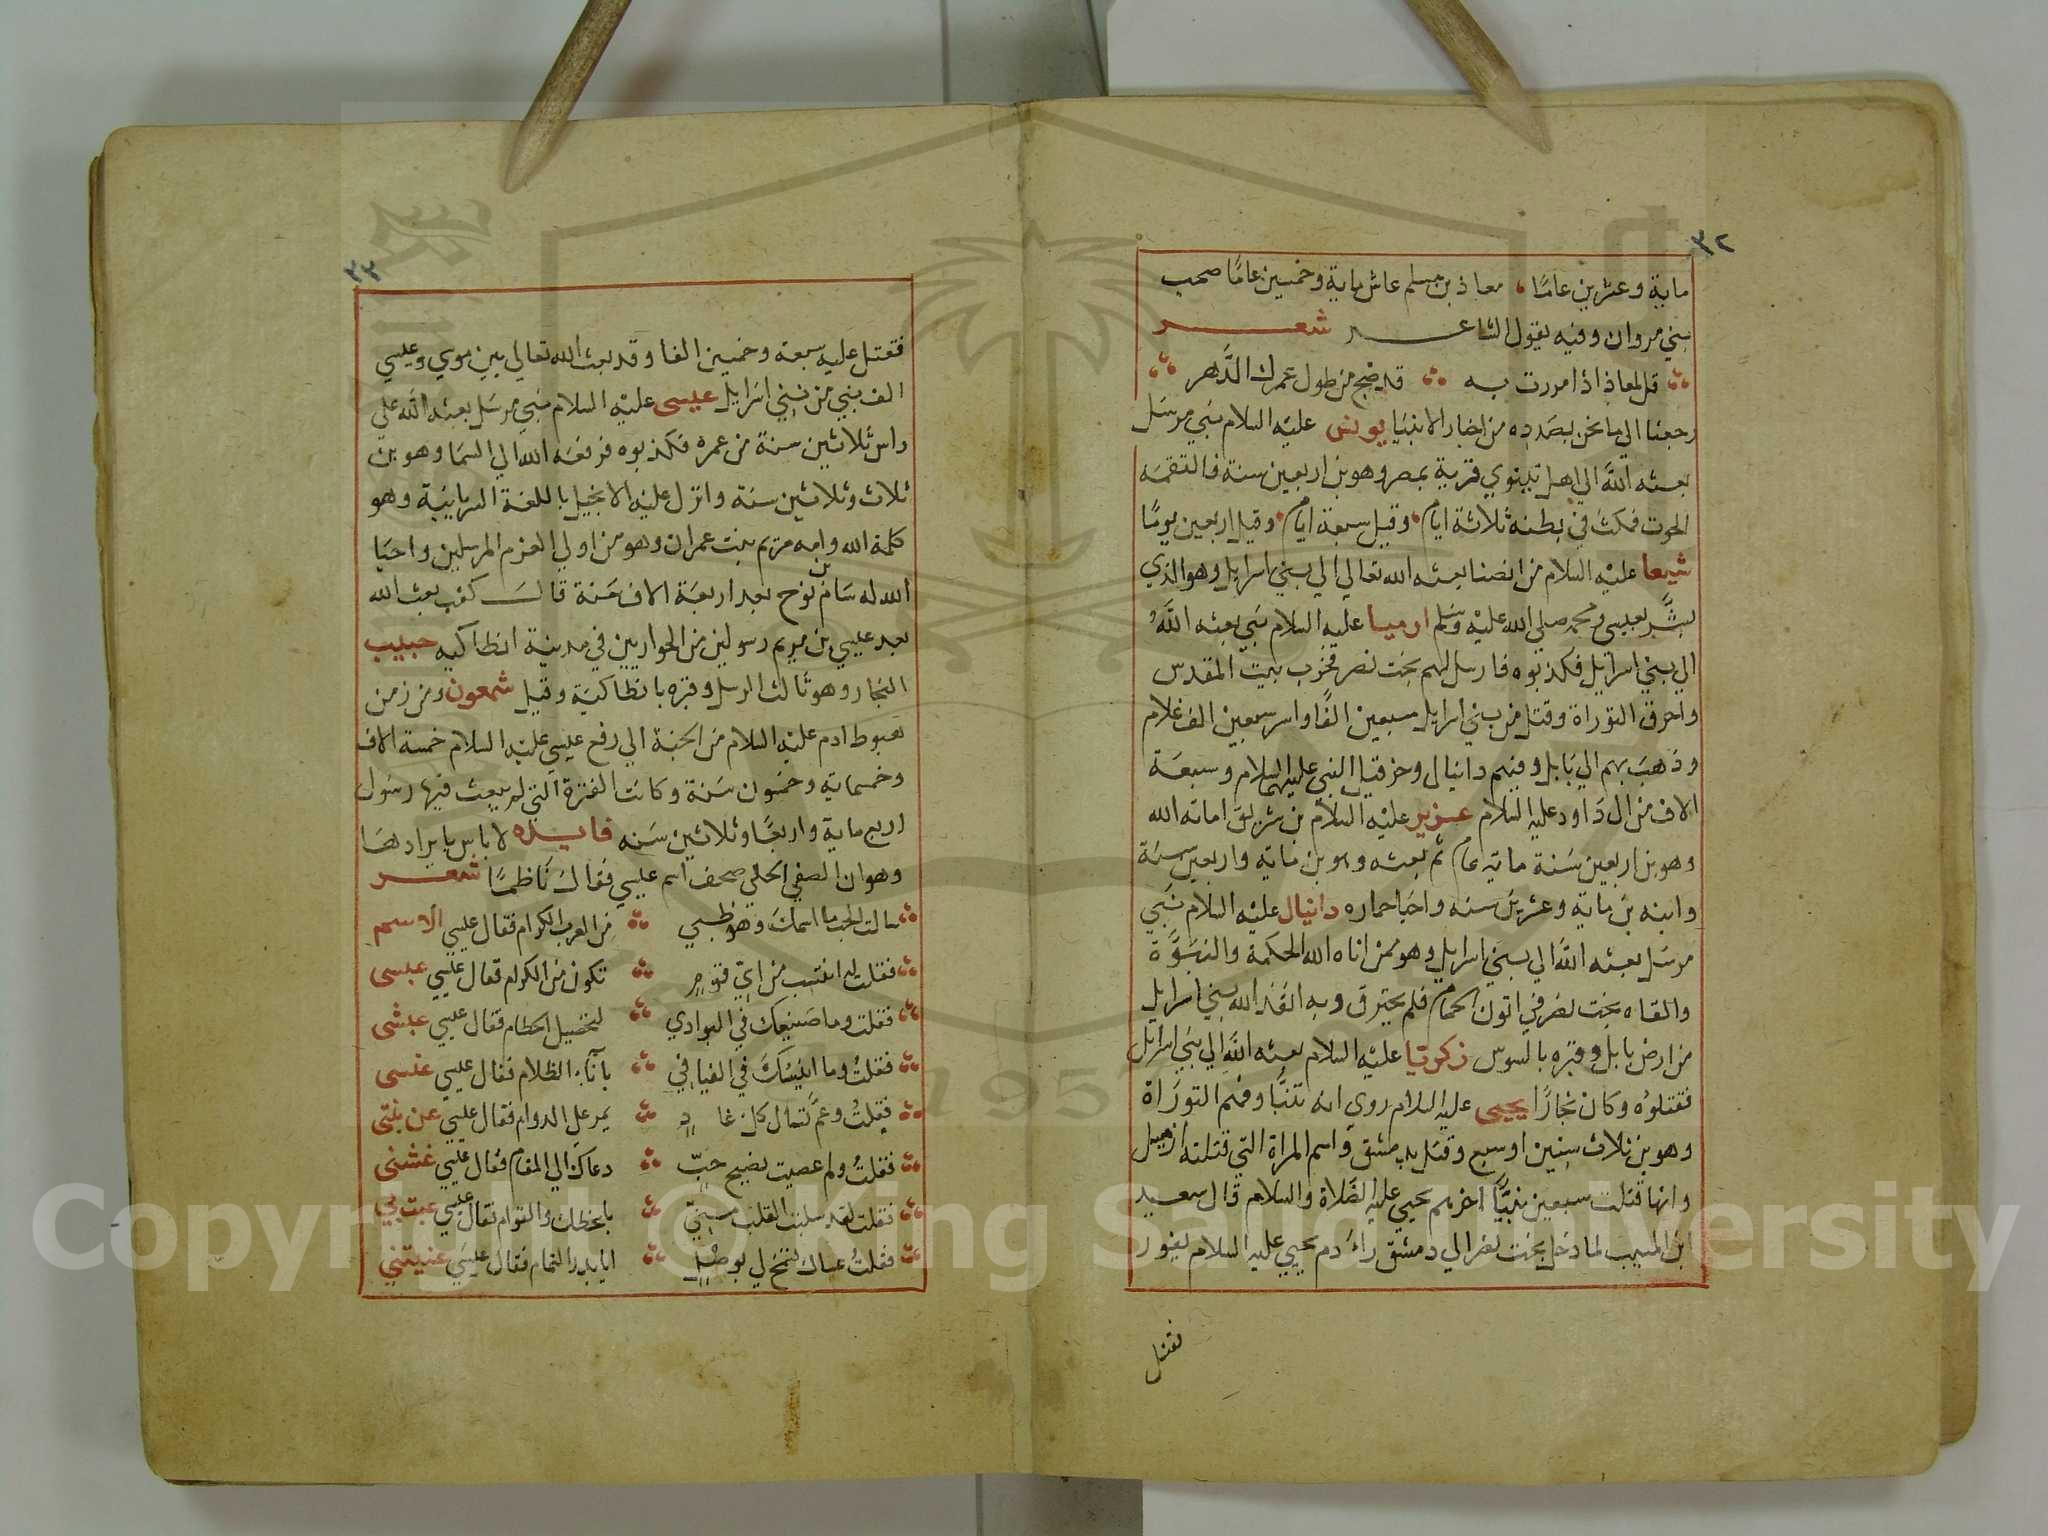 ٣٢
ماية وعشرين عامًا، معاذ بن مسلم عاش ماية وخمسين عامًا صحب
بني مروان وفيه يقول الشاعر شعر
قل لمعاذ اذا مررت به قد ضج من طول عمرك الدَّهر
رجعنا الي ما نحن بصَدده من اخبار الانبيا يونس عليه السلام نبي مرسَل
بعثه الله الي اهل نينوي قرية بمصر وهو بن اربعين سنة فالتقمَه
الحوت فمكث في بطنه ثلاثة ايام، وقيل سبعة ايام، وقيل اربعين يومًا
شيعا عليْه السلام من انصنا بعثه الله تعالي الي بني اسرايل وهو الذي
بشَّر بعيسي ومحمد صلي الله عليْه وسَلم ارميا عليه السلام نبي بعثه اللهُ
الي بني اسرايل فكذبوه فارسل لهم بخت نصر فخرب بيت المقدس
واحرق التوراة وقتل من بني اسرايل سبعين الفًا واسر سبعين الف غلام
وذهبَ بهم الي بَابل وفيهم دانيال وحزقيل النبي عليهما السلام وسبعَة
الاف من ال دَاود عليه السلام عزير عليْه السلام بن شريق اماته الله
وهو بن اربعين سَنة ماية عام ثم بعثه وهو بن ماية واربعين سنة
وابنه بن ماية وعشرين سنه واحيا حماره دانيال عليْه السلام نَبي
مرسَل بعثه اللهُ الي بني اسرايل وهو ممن اتاه الله الحكمة والنبوَّة
والقاه بخت نصر في اتون الحمام فلم يحترق وبه انقذ الله بني اسرايل
من ارض بابل وقبره بالسوس زكريا عليْه السلام بعثه اللهُ الي بني اسرايل
فقتلوُه وكان نجارًا يحيى عليه السلام روي انه تنبَّا وفهم التورَاة
وهو بن ثلاث سِنين او سبع وقتل بدمشق واسم المراة التي قتلته ازميل
وانها قتلت سبعين نبيًّا اخرهم يحيي عليه الصَّلاة والسلام قال سعيد
ابن المسيب لما دخل بخت نصر الي دمشق راَي دم يحيي عليه السلام يفور
فقتل
٣٣
فقتل عليه سبعة وخمسين الفا وقد بعث الله تعالي بين موسي وعيسي
الف نبي من بني اسرايل عيسى عليْه السلام نبي مرسَل بعثه الله علي
راس ثلاثين سنة من عمره فكذبوه فرفعَه الله الي السمَا وهو بن
ثلاث وثلاثين سنة وانزل عليْه الانجيل باللغة السريانية وهو
كلمة الله وامه مريم بنت عمران وهو من اولي العزم المرسلين واحيَا
الله له سَام بن نوح بعد اربعَة الاف سَنة قال كعب بعث الله
بعد عيسي بن مريم رسولين من الحواريين في مدينة انطاكيه حبيب
النجار وهو ثالث الرسل وقبره بانطاكية وقيل شمعون ومن زمن
هبوط ادم عليْه السلام من الجنة الي رفع عيسي عليْه السلام خمسة الاف
وخمسماية وخمسون سَنة وكانت الفترة التي لم يبعث فيها رسُول
اربع ماية واربعًا وثلاثين سَنه فايده لا باس بايرادهَا
وهو ان الصفي الحلي صحف اسم عيسي فقال نَاظمًا شعر
سالت الحب ما اسمك وهو ظبي من العرب الكرام فقال عيسي الاسم
فقلت له انتسب من ايّ قوم تكون من الكرام فقال عيسي عبسى
فقلت وما صَنيعك في البوادي لتحصيل الحطام فقال عيسي عبشى
فقلتُ وما انيسُكَ في الفيافي بآناَء الظلام فقال عيسي عنسى
فقلتُ وعمَّ تسال كل غاد يمر علي الدوام فقال عيسي عن بنتي
فقلتُ ولم عصيت نصيح حبّ دعاك الي المقام فقال عيسي غشنى
فقلت لقد سلبت القلب مني بلحظك والقوام فقال عيسي عبت بي
فقلتُ عساك تسمح لي بوصْلٍ ايا بدر التمام فقال عيسَي عنيتني
Copyright © King Saud University